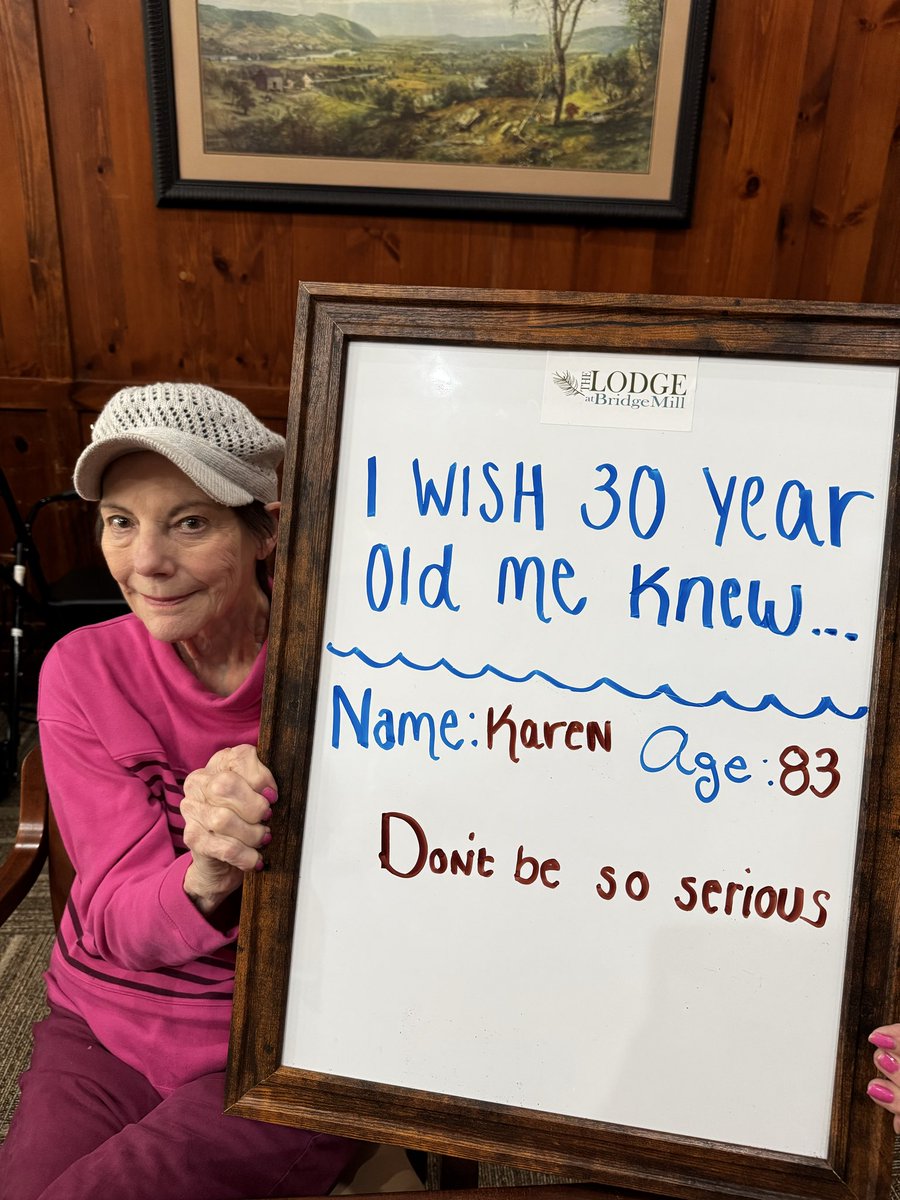 THE LODGE
at BridgeMill
I WISH 30 Year
Old me knew...
Name: Karen Age: 83
Don't be so serious